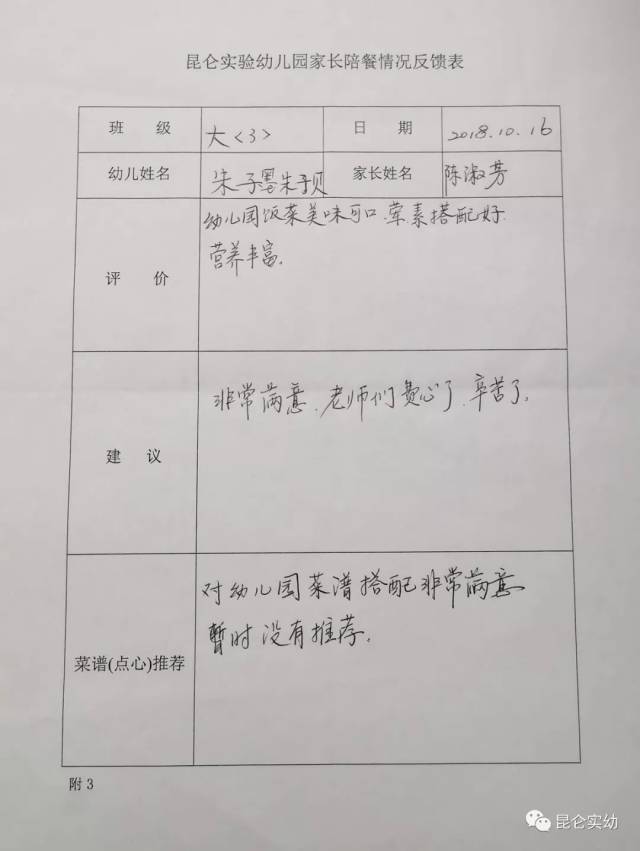 昆仑实验幼儿园家长陪餐情况反馈表
班 级 大<3> 日 期 2018.10.16
幼儿姓名 朱子墨朱子贝 家长姓名 陈淑芳
评 价
幼儿园饭菜美味可口.荤素搭配好
营养丰富.
建 议
非常满意.老师们费心了.辛苦了.
菜谱(点心)推荐
对幼儿园菜谱搭配非常满意
暂时没有推荐.
附 3
昆仑实幼